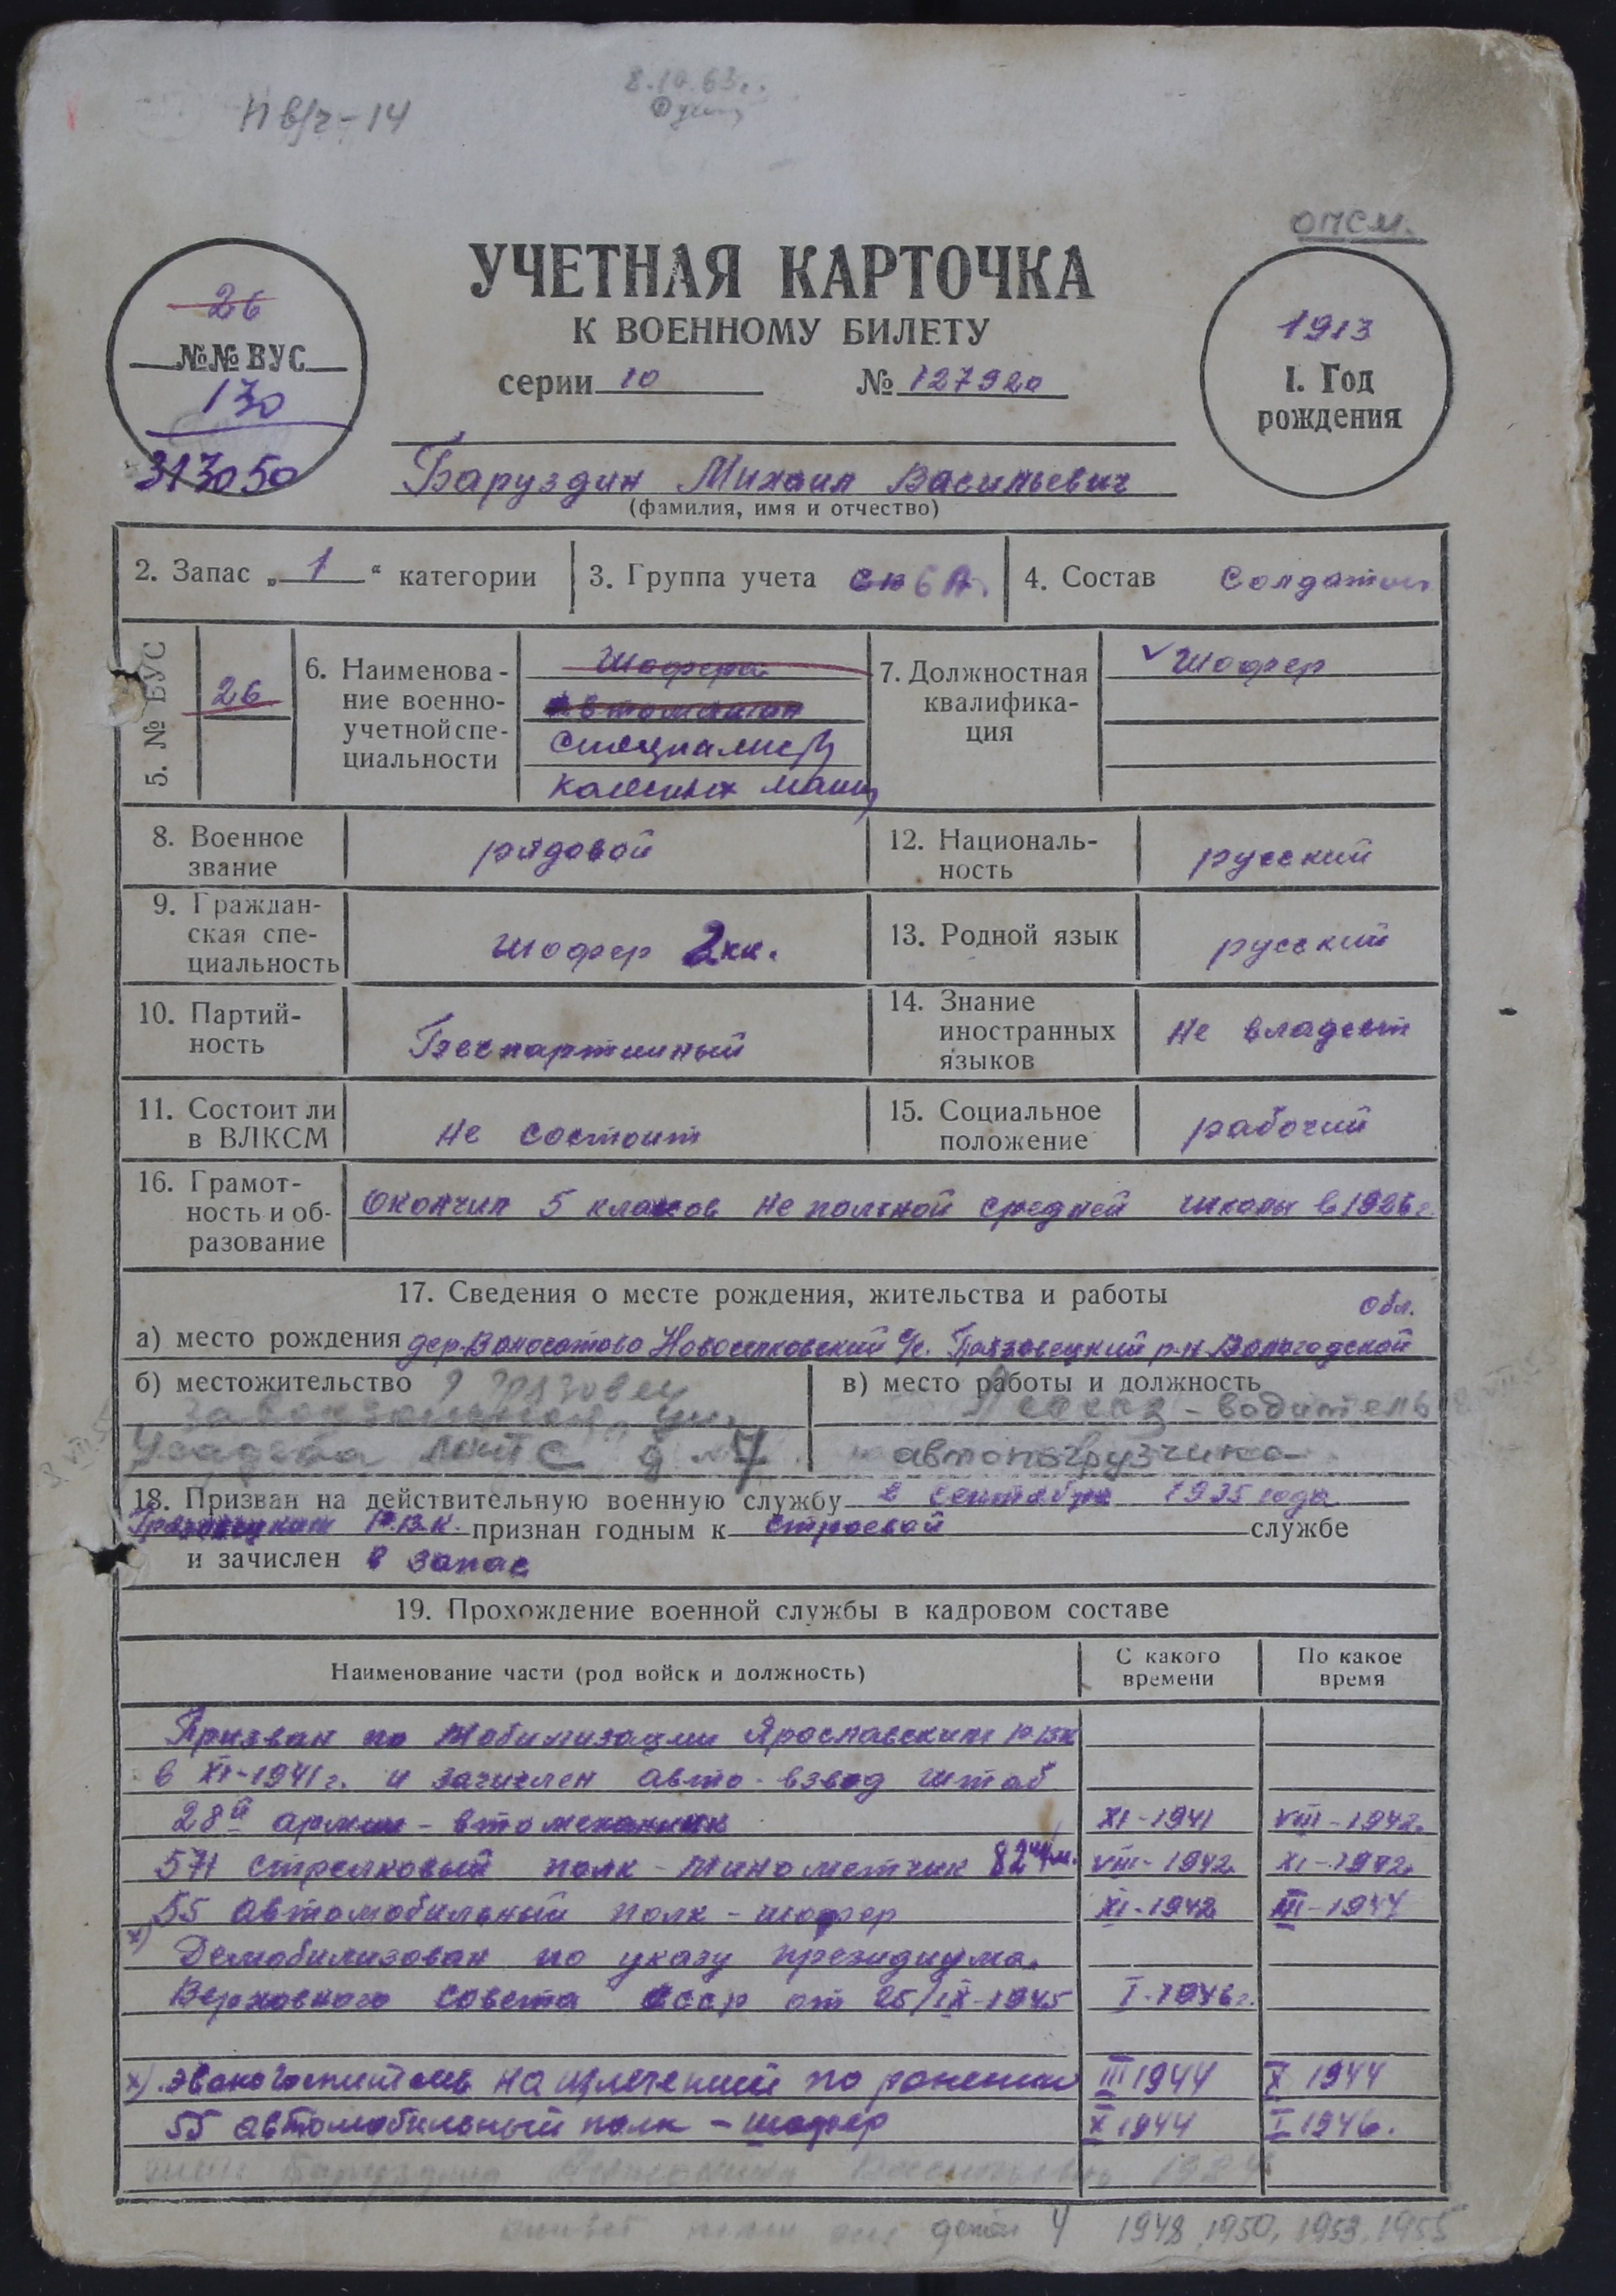 П в/ч-14
8.10.63г.
опсм.
26
№№ ВУС
130
313050
УЧЕТНАЯ КАРТОЧКА
К ВОЕННОМУ БИЛЕТУ
серии 10 № 127920
1913
1. Год
рождения
Баруздин Михаил Васильевич
(фамилия, имя и отчество)
2. Запас „ 1 “ категории
3. Группа учета СА
4. Состав Солдатск
5. № ВУС
26
6. Наименова-
ние военно-
учетной спе-
циальности
Шофера
Специалист
колесных машин
7. Должностная
квалифика-
ция
Шофер
8. Военное
звание
рядовой
12. Националь-
ность
русский
9. Граждан-
ская спе-
циальность
шофер 2 кл.
13. Родной язык
русский
10. Партий-
ность
Беспартийный
14. Знание
иностранных
языков
Не владеет
11. Состоит ли
в ВЛКСМ
Не состоит
15. Социальное
положение
рабочий
16. Грамот-
ность и об-
разование
Окончил 5 классов не полной средней школы в 1926 г.
17. Сведения о месте рождения, жительства и работы
обл.
а) место рождения дер. Волосатово Новоселковский с/с. Грязовецкий р-н Вологодской
б) местожительство г Грязовец
ул.
Усадьба д 7
в) место работы и должность
- водитель
автопогрузчика
18. Призван на действительную военную службу в сентябре 1935 года
Грязовецким Р.В.К. признан годным к строевой службе
и зачислен в запас
19. Прохождение военной службы в кадровом составе
Наименование части (род войск и должность)
С какого
времени
По какое
время
Призван по мобилизации Ярославским РВК
в XI-1941г. и зачислен авто-взвод штаб
28й армии - втомеханик XI-1941 VIII-1942.
571 стрелковый полк - минометчик 82мм. VIII-1942 XI-1942
55 автомобильный полк - шофер XI-1942 III-1944
х)
Демобилизован по указу президиума
Верховного Совета СССР от 25/IX-1945 I-1946г.
х) эвакогоспиталь на излечении по ранению III 1944 X 1944
55 автомобильный полк - шофер X 1944 I 1946.
Баруздина Васильевна
детей 4 1948, 1950, 1953, 1955